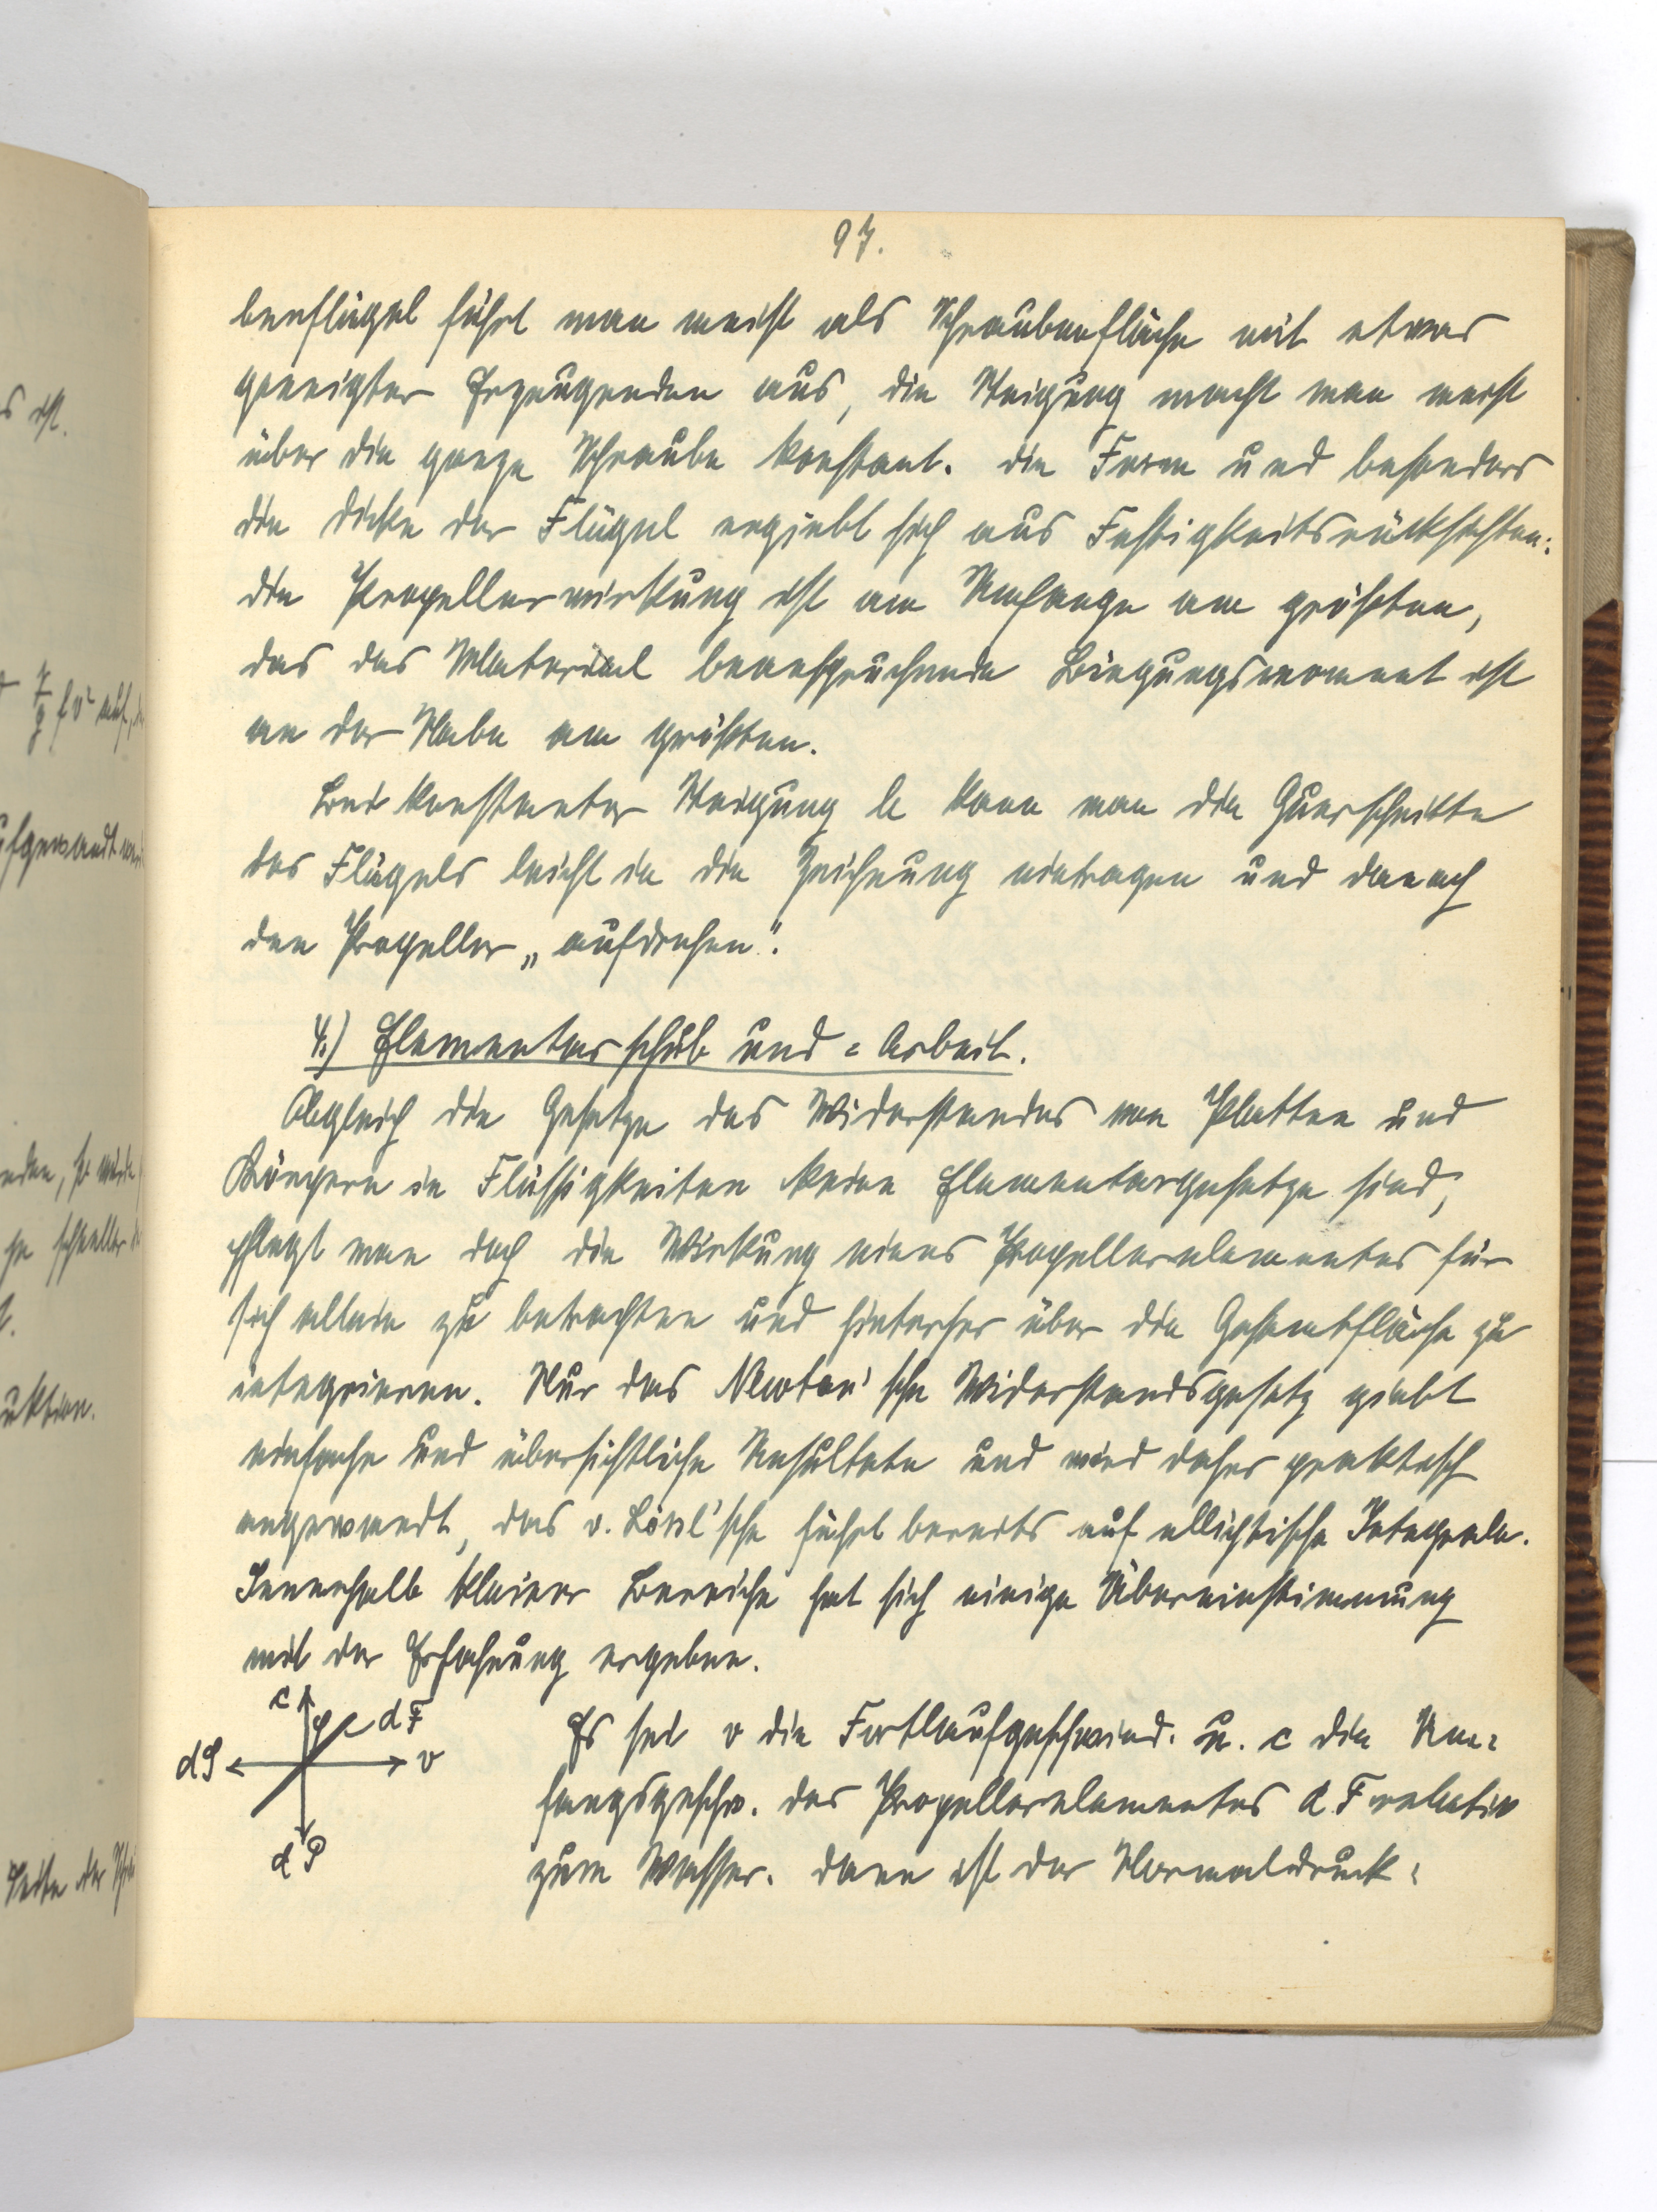 s ist.
γ/g f v² auf,
ufgewandt
nden, so würde
je schneller
t.
uktion.
Seite der
97.
benflügel führt man meist als Schraubenfläche mit etwas
geneigter Erzeugenden aus, die Steigung macht man meist
über die ganze Schraube konstant. Die Form und besonders
die Dicke der Flügel ergiebt sich aus Festigkeitsrücksichten:
die Propellerwirkung ist am Umfange am größten,
das das Material beanspruchende Biegungsmoment ist
an der Nabe am größten.
Bei konstanter Steigung h kann man die Querschnitte
des Flügels leicht in die Zeichnung eintragen und danach
den Propeller „aufdrehen".
4.) Elementarschub und =Arbeit.
Obgleich die Gesetze des Widerstandes von Platten und
Körpern in Flüssigkeiten keine Elementargesetze sind,
pflegt man doch die Wirkung eines Propellerelementes für
sich allein zu betrachten und hinterher über die Gesamtfläche zu
integrieren. Nur das Newton'sche Widerstandsgesetz giebt
einfache und übersichtliche Resultate und wird daher praktisch
angewandt, das v. Lössl'sche führt bereits auf elliptische Integrale.
Innerhalb kleiner Bereiche hat sich einige Übereinstimmung
mit der Erfahrung ergeben.
c φ dF
dS v
dP
Es sei v die Fortlaufgeschwind. u. c die Um=
fangsgeschw. des Propellerelementes dF relativ
zum Wasser. Dann ist der Normaldruck: